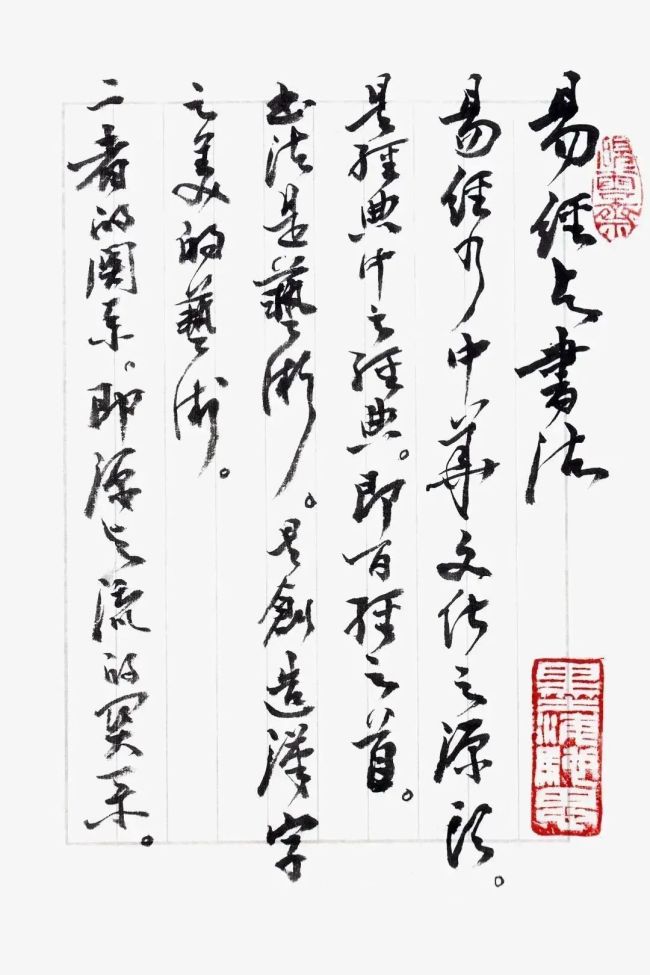 易經与書法
易經乃中華文化之源頭。
是經典中之經典。即百經之首。
書法是藝術。是創造漢字
之美的藝術。
二者的関系。即源与流的関系。